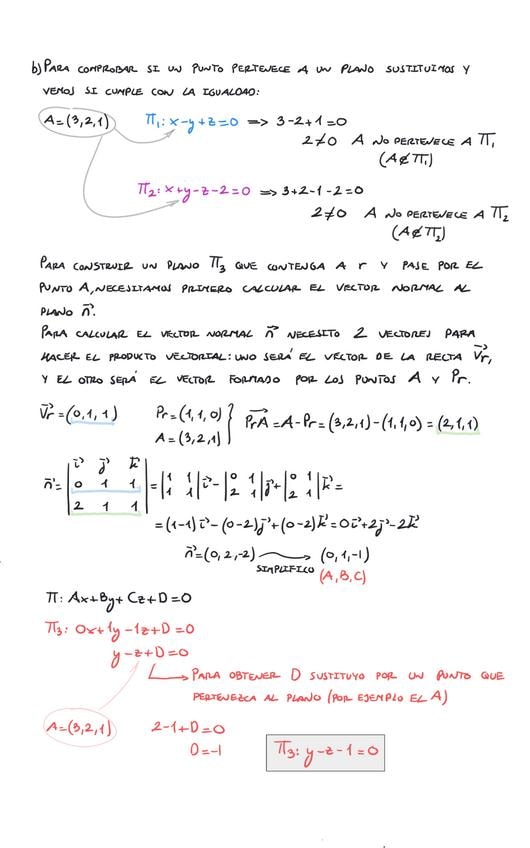 b) PARA COMPROBAR SI UN PUNTO PERTENECE A UN PLANO SUSTITUIMOS Y
VEMOS SI CUMPLE CON LA IGUALDAD:
A=(3,2,1) π₁: x-y+z=0 => 3-2+1=0
2≠0 A NO PERTENECE A π₁
(A∉π₁)
π₂: x+y-z-2=0 => 3+2-1-2=0
2≠0 A NO PERTENECE A π₂
(A∉π₂)
PARA CONSTRUIR UN PLANO π₃ QUE CONTENGA A r Y PASE POR EL
PUNTO A, NECESITAMOS PRIMERO CALCULAR EL VECTOR NORMAL AL
PLANO n⃗.
PARA CALCULAR EL VECTOR NORMAL n⃗ NECESITO 2 VECTORES PARA
HACER EL PRODUCTO VECTORIAL: UNO SERÁ EL VECTOR DE LA RECTA V⃗r,
Y EL OTRO SERÁ EL VECTOR FORMADO POR LOS PUNTOS A Y Pr.
V⃗r=(0,1,1) Pr=(1,1,0)
A=(3,2,1) } PrA⃗=A-Pr=(3,2,1)-(1,1,0)=(2,1,1)
n⃗=| i⃗ j⃗ k⃗ |
| 0 1 1 | =|1 1; 1 1|i⃗-|0 1; 2 1|j⃗+|0 1; 2 1|k⃗=
| 2 1 1 |
=(1-1)i⃗-(0-2)j⃗+(0-2)k⃗=0i⃗+2j⃗-2k⃗
n⃗=(0,2,-2) SIMPLIFICO (0,1,-1)
(A,B,C)
π: Ax+By+Cz+D=0
π₃: 0x+1y-1z+D=0
y-z+D=0
PARA OBTENER D SUSTITUYO POR UN PUNTO QUE
PERTENEZCA AL PLANO (POR EJEMPLO EL A)
A=(3,2,1) 2-1+D=0
D=-1 π₃: y-z-1=0